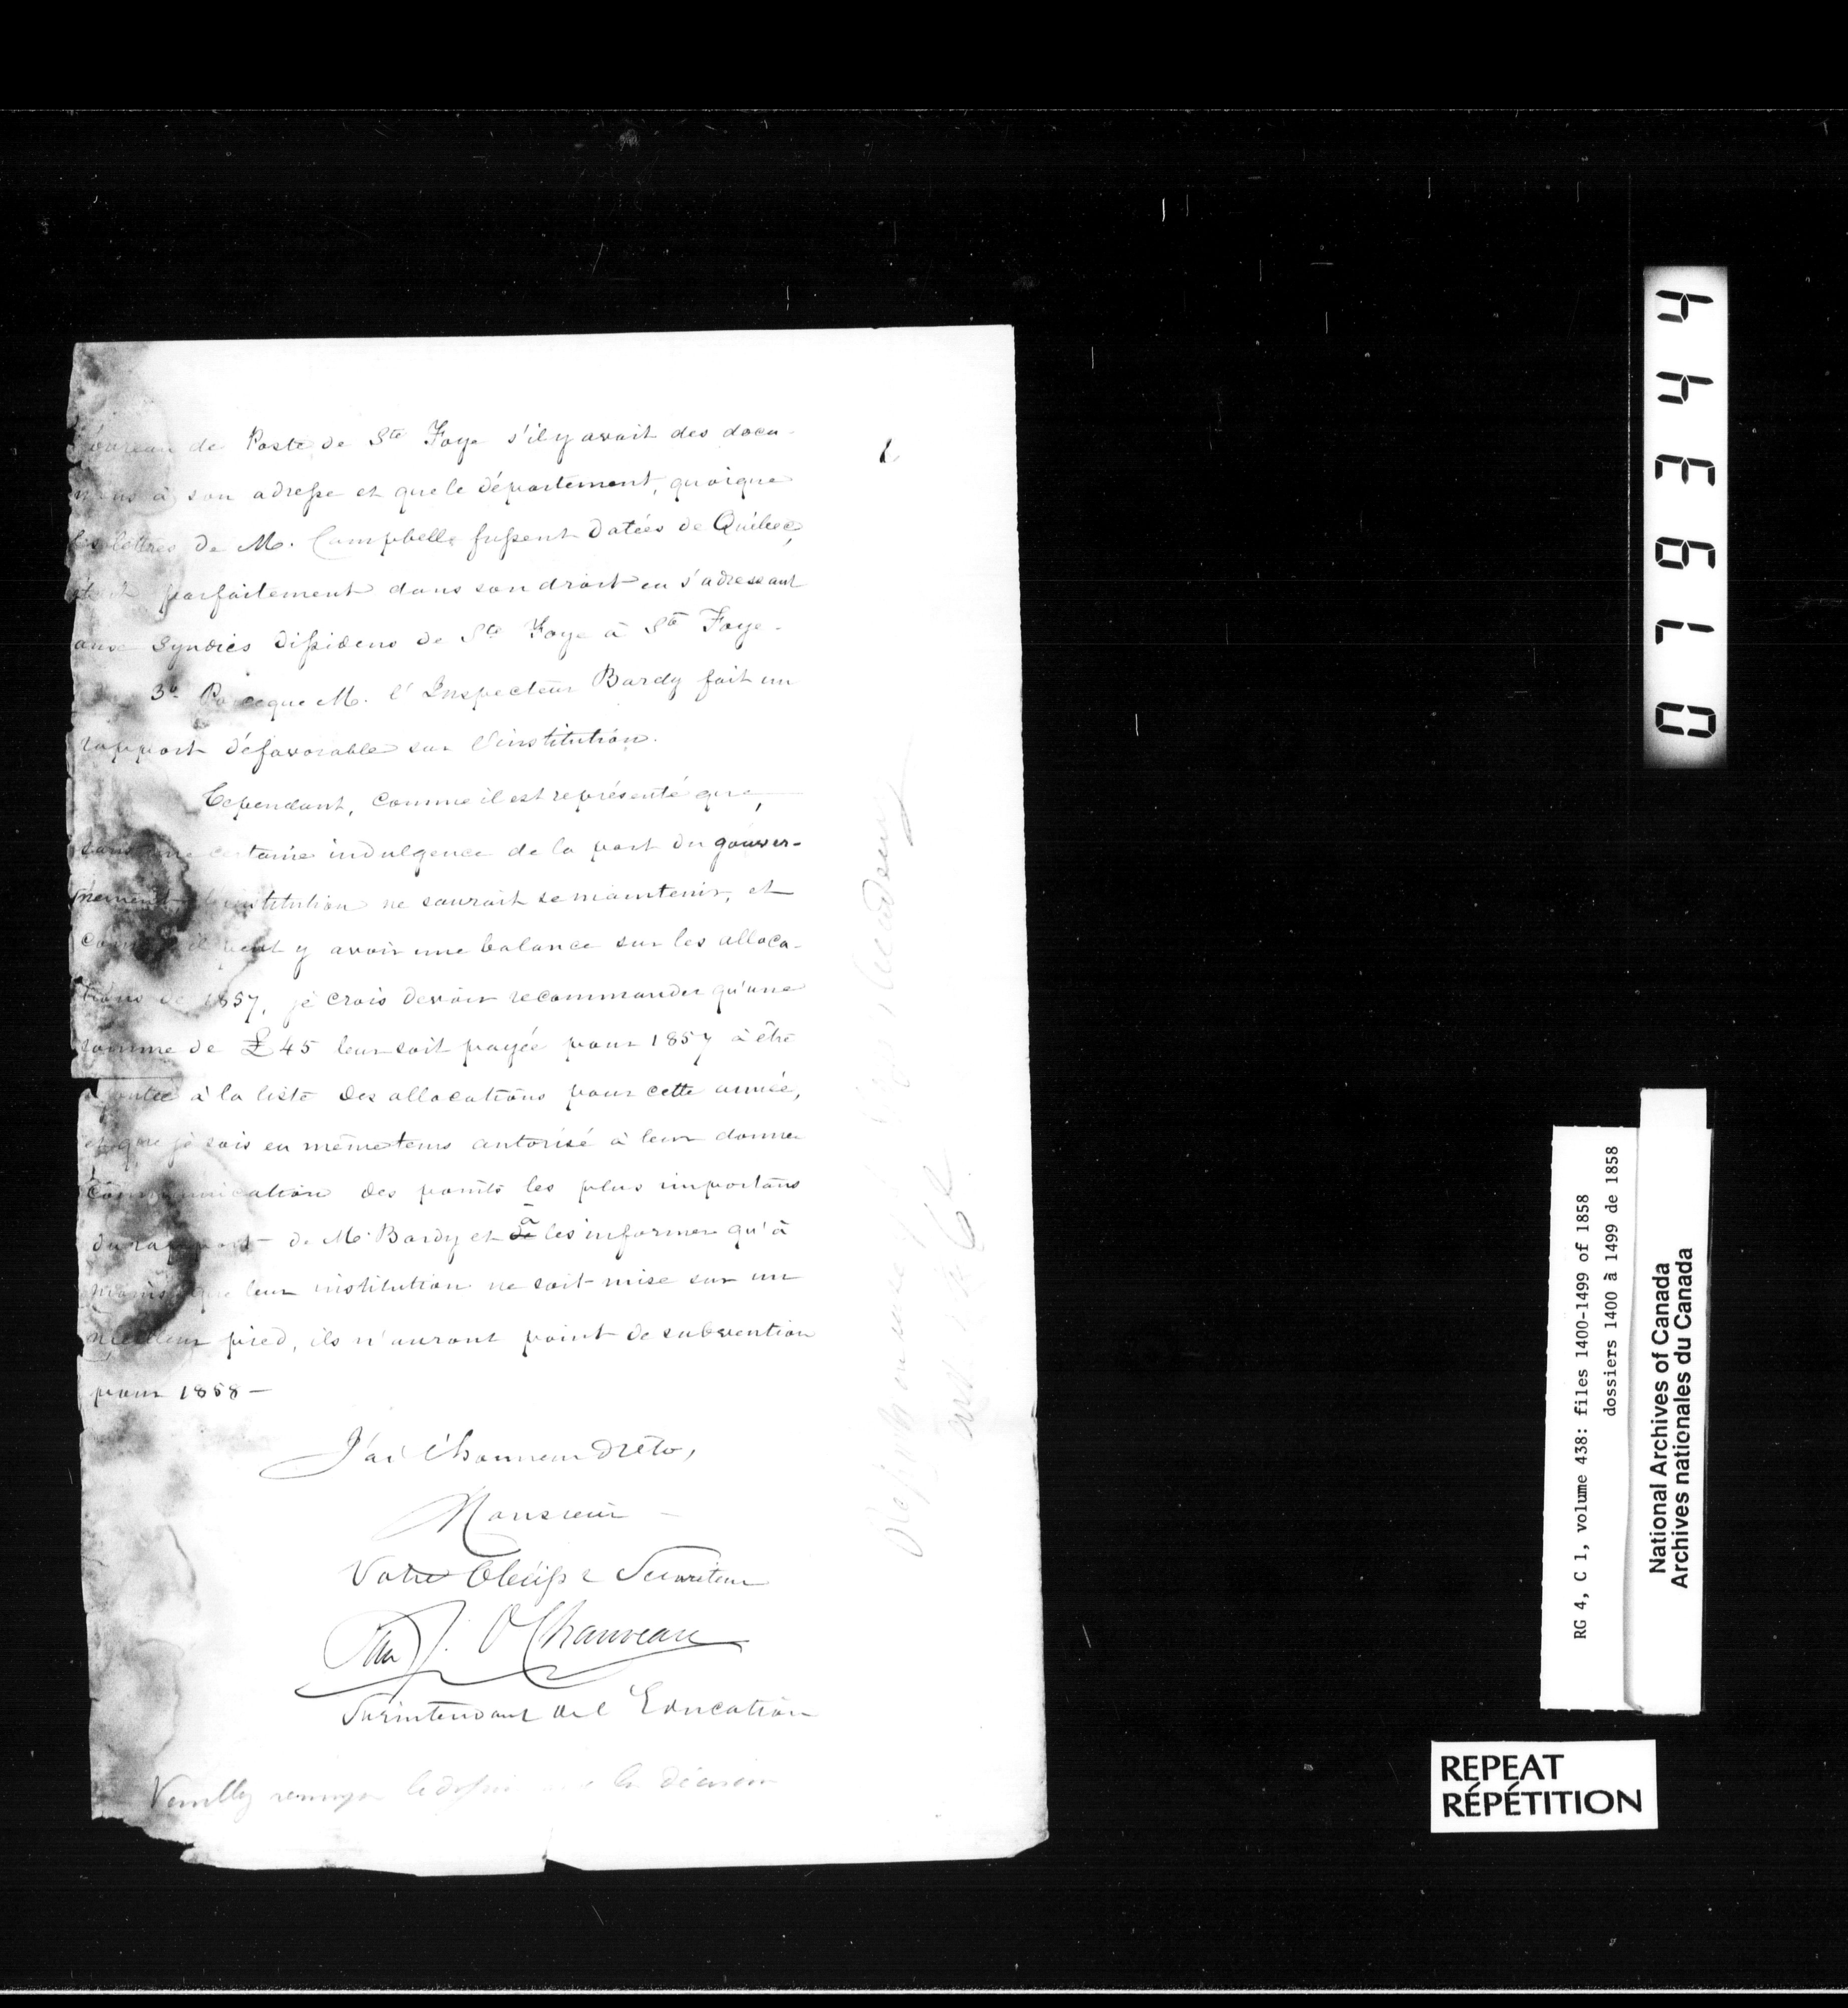 bureau de Poste de Ste Foye s'il y avait des docu-
mens à son adresse et que le département, quoique
les lettres de M. Campbell fussent datées de Québec,
était parfaitement dans son droit en s'adressant
aux Syndics dissidens de Ste Foye à Ste Foye.
3o. Parceque M. l'Inspecteur Bardy fait un
rapport défavorable sur l'institution.
Cependant, comme il est représenté que,
sans une certaine indulgence de la part du gouver-
nement l'institution ne saurait se maintenir, et
comme il peut y avoir une balance sur les alloca-
tions de 1857, je crois devoir recommander qu'une
somme de £45 leur soit payée pour 1857 à être
ajoutée à la liste des allocations pour cette année,
et que je sois en même tems autorisé à leur donner
communication des points les plus importans
du rapport de M. Bardy et à les informer qu'à
moins que leur institution ne soit mise sur un
meilleur pied, ils n'auront point de subvention
pour 1858 —
J'ai l'honneur d'être,
Monsieur
Votre Obéisst Serviteur
Pierre J. O Chauveau
Surintendant de l'Education
Veuillez renvoyer le dossier la décision
044 
0196344
RG 4, C 1, volume 438: files 1400-1499 of 1858
dossiers 1400 à 1499 de 1858
National Archives of Canada
Archives nationales du Canada
REPEAT
RÉPÉTITION